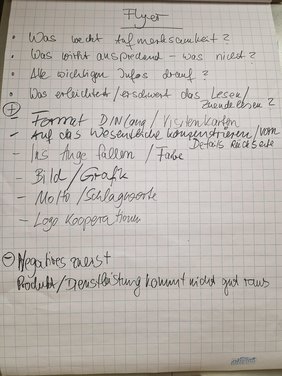 Flyer
• Was weckt Aufmerksamkeit?
• Was wirkt ansprechend - was nicht?
• Alle wichtigen Infos drauf?
• Was erleichtert/erschwert das Lesen/
zuende lesen?
+
- Format DINlang/Visitenkarten
- Auf das Wesentliche konzentrieren/vorn
Details Rückseite
- Ins Auge fallen/Farbe
- Bild/Grafik
- Motto/Schlagworte
- Logo Kooperationen
- Negatives zuerst
Produkt/Dienstleistung kommt nicht gut raus